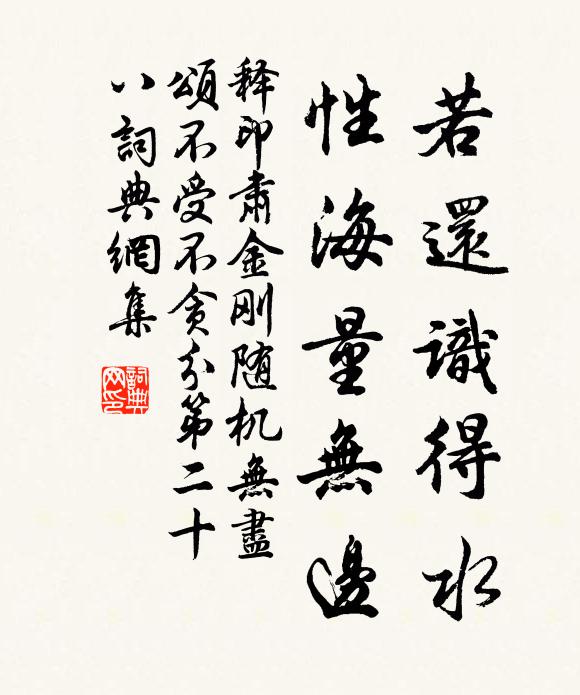 若還識得水
性海量無邊
释印肅金刚随机無盡
頌不受不贪分第二十
八詞典網集
詞典
网印